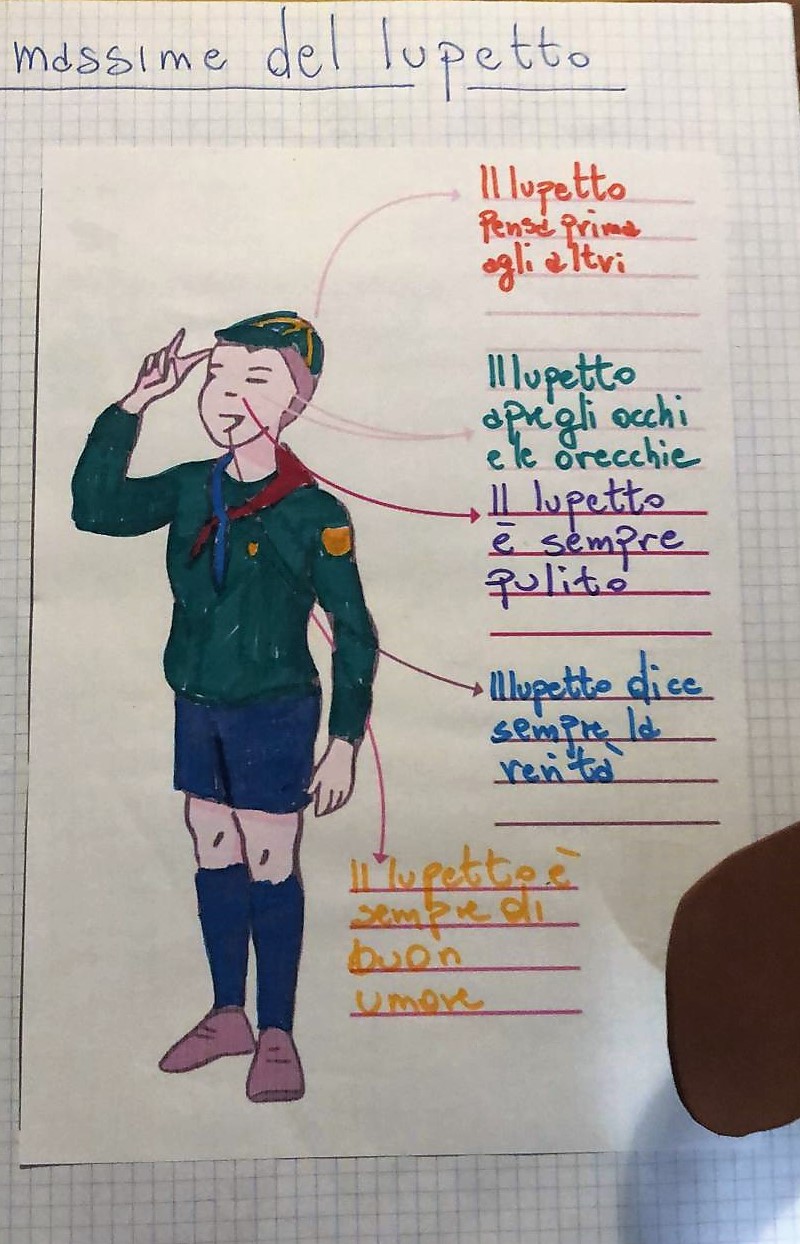 massime del lupetto
Il lupetto
pensa prima
agli altri
Il lupetto
apre gli occhi
e le orecchie
Il lupetto
è sempre
pulito
Il lupetto dice
sempre la
verità
Il lupetto è
sempre di
buon
umore